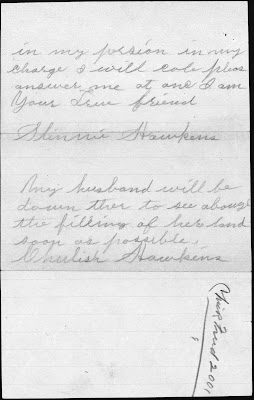 in my persion in my
charge I will cole pleas
answer me at one I am
Your true friend
Minnie Hawkins
My husband will be
down ther to see about
the filling of her land
soon as possible,
Hawkins